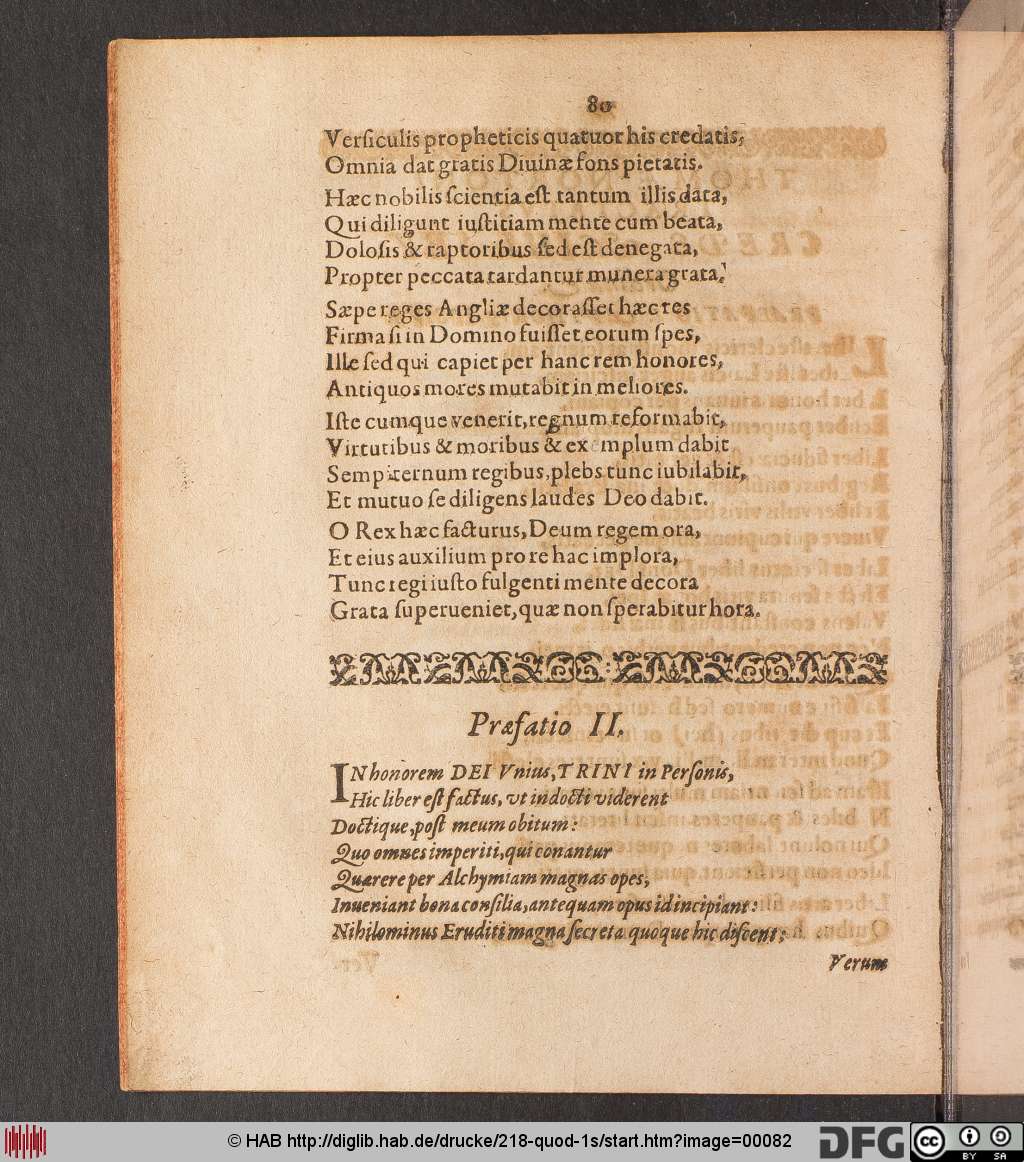 80
Versiculis propheticis quatuor his credatis,
Omnia dat gratis Diuinæ fons pietatis.
Hæc nobilis scientia est tantum illis data,
Qui diligunt iustitiam mente cum beata,
Dolosis & raptoribus sed est denegata,
Propter peccata tardantur munera grata.
Sæpe reges Angliæ decorasset hæc res
Firma si in Domino fuisset eorum spes,
Ille sed qui capiet per hanc rem honores,
Antiquos mores mutabit in meliores.
Iste cumque venerit, regnum reformabit,
Virtutibus & moribus & exemplum dabit
Sempiternum regibus, plebs tunc iubilabit,
Et mutuo se diligens laudes Deo dabit.
O Rex hæc facturus, Deum regem ora,
Et eius auxilium pro re hac implora,
Tunc regi iusto fulgenti mente decora
Grata superueniet, quæ non sperabitur hora.
Præfatio II.
IN honorem DEI Vnius, TRINI in Personis,
Hic liber est factus, vt indocti viderent
Doctique, post meum obitum:
Quo omnes imperiti, qui conantur
Quærere per Alchymiam magnas opes,
Inueniant bona consilia, antequam opus id incipiant:
Nihilominus Eruditi magna secreta quoque hic discent:
Verum
© HAB http://diglib.hab.de/drucke/218-quod-1s/start.htm?image=00082
DFG
cc
BY SA